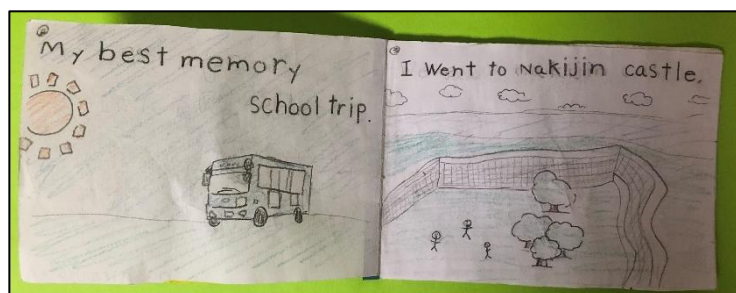 My best memory
school trip.
I went to Nakijin castle.